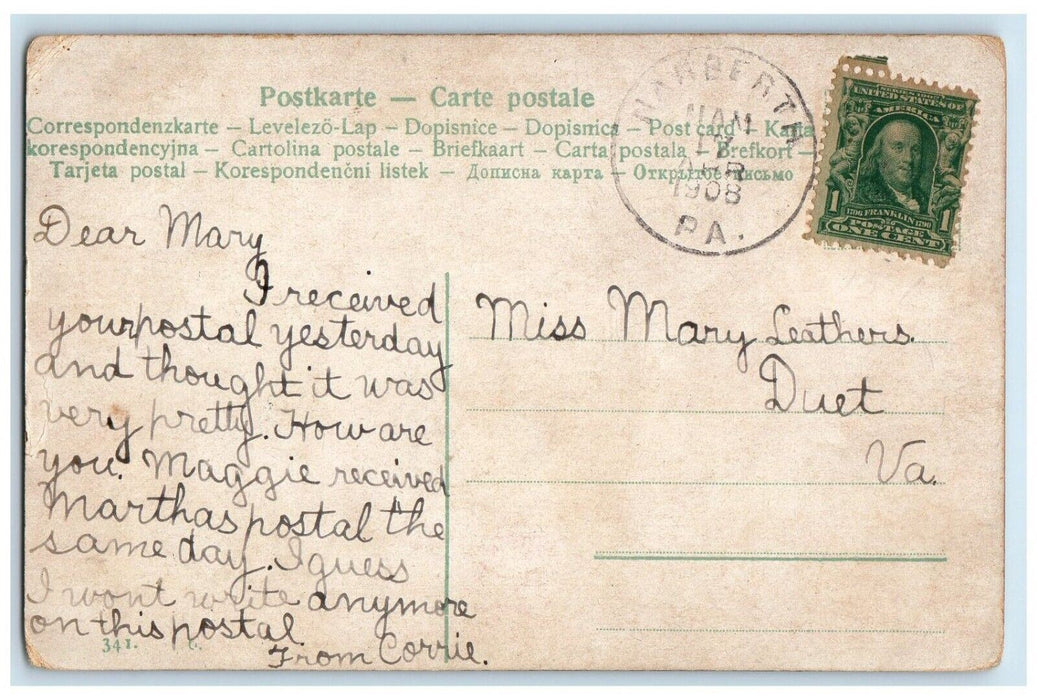 Postkarte — Carte postale
Correspondenzkarte – Levelező-Lap – Dopisnice – Dopisnica – Post card – Karta
korespondencyjna – Cartolina postale – Briefkaart – Carta postala – Brefkort –
Tarjeta postal – Korespondenční listek – Дописна карта – Открытое письмо
NARBERTH
11 AM
APR
1908
PA.
UNITED STATES OF
AMERICA
1 1
1706 FRANKLIN 1790
POSTAGE
ONE CENT
Dear Mary
I received
your postal yesterday
and thought it was
very pretty. How are
you. Maggie received
Marthas postal the
same day. I guess
I wont write anymore
on this postal.
From Corrie.
341.
Miss Mary Leathers.
Duet
Va.